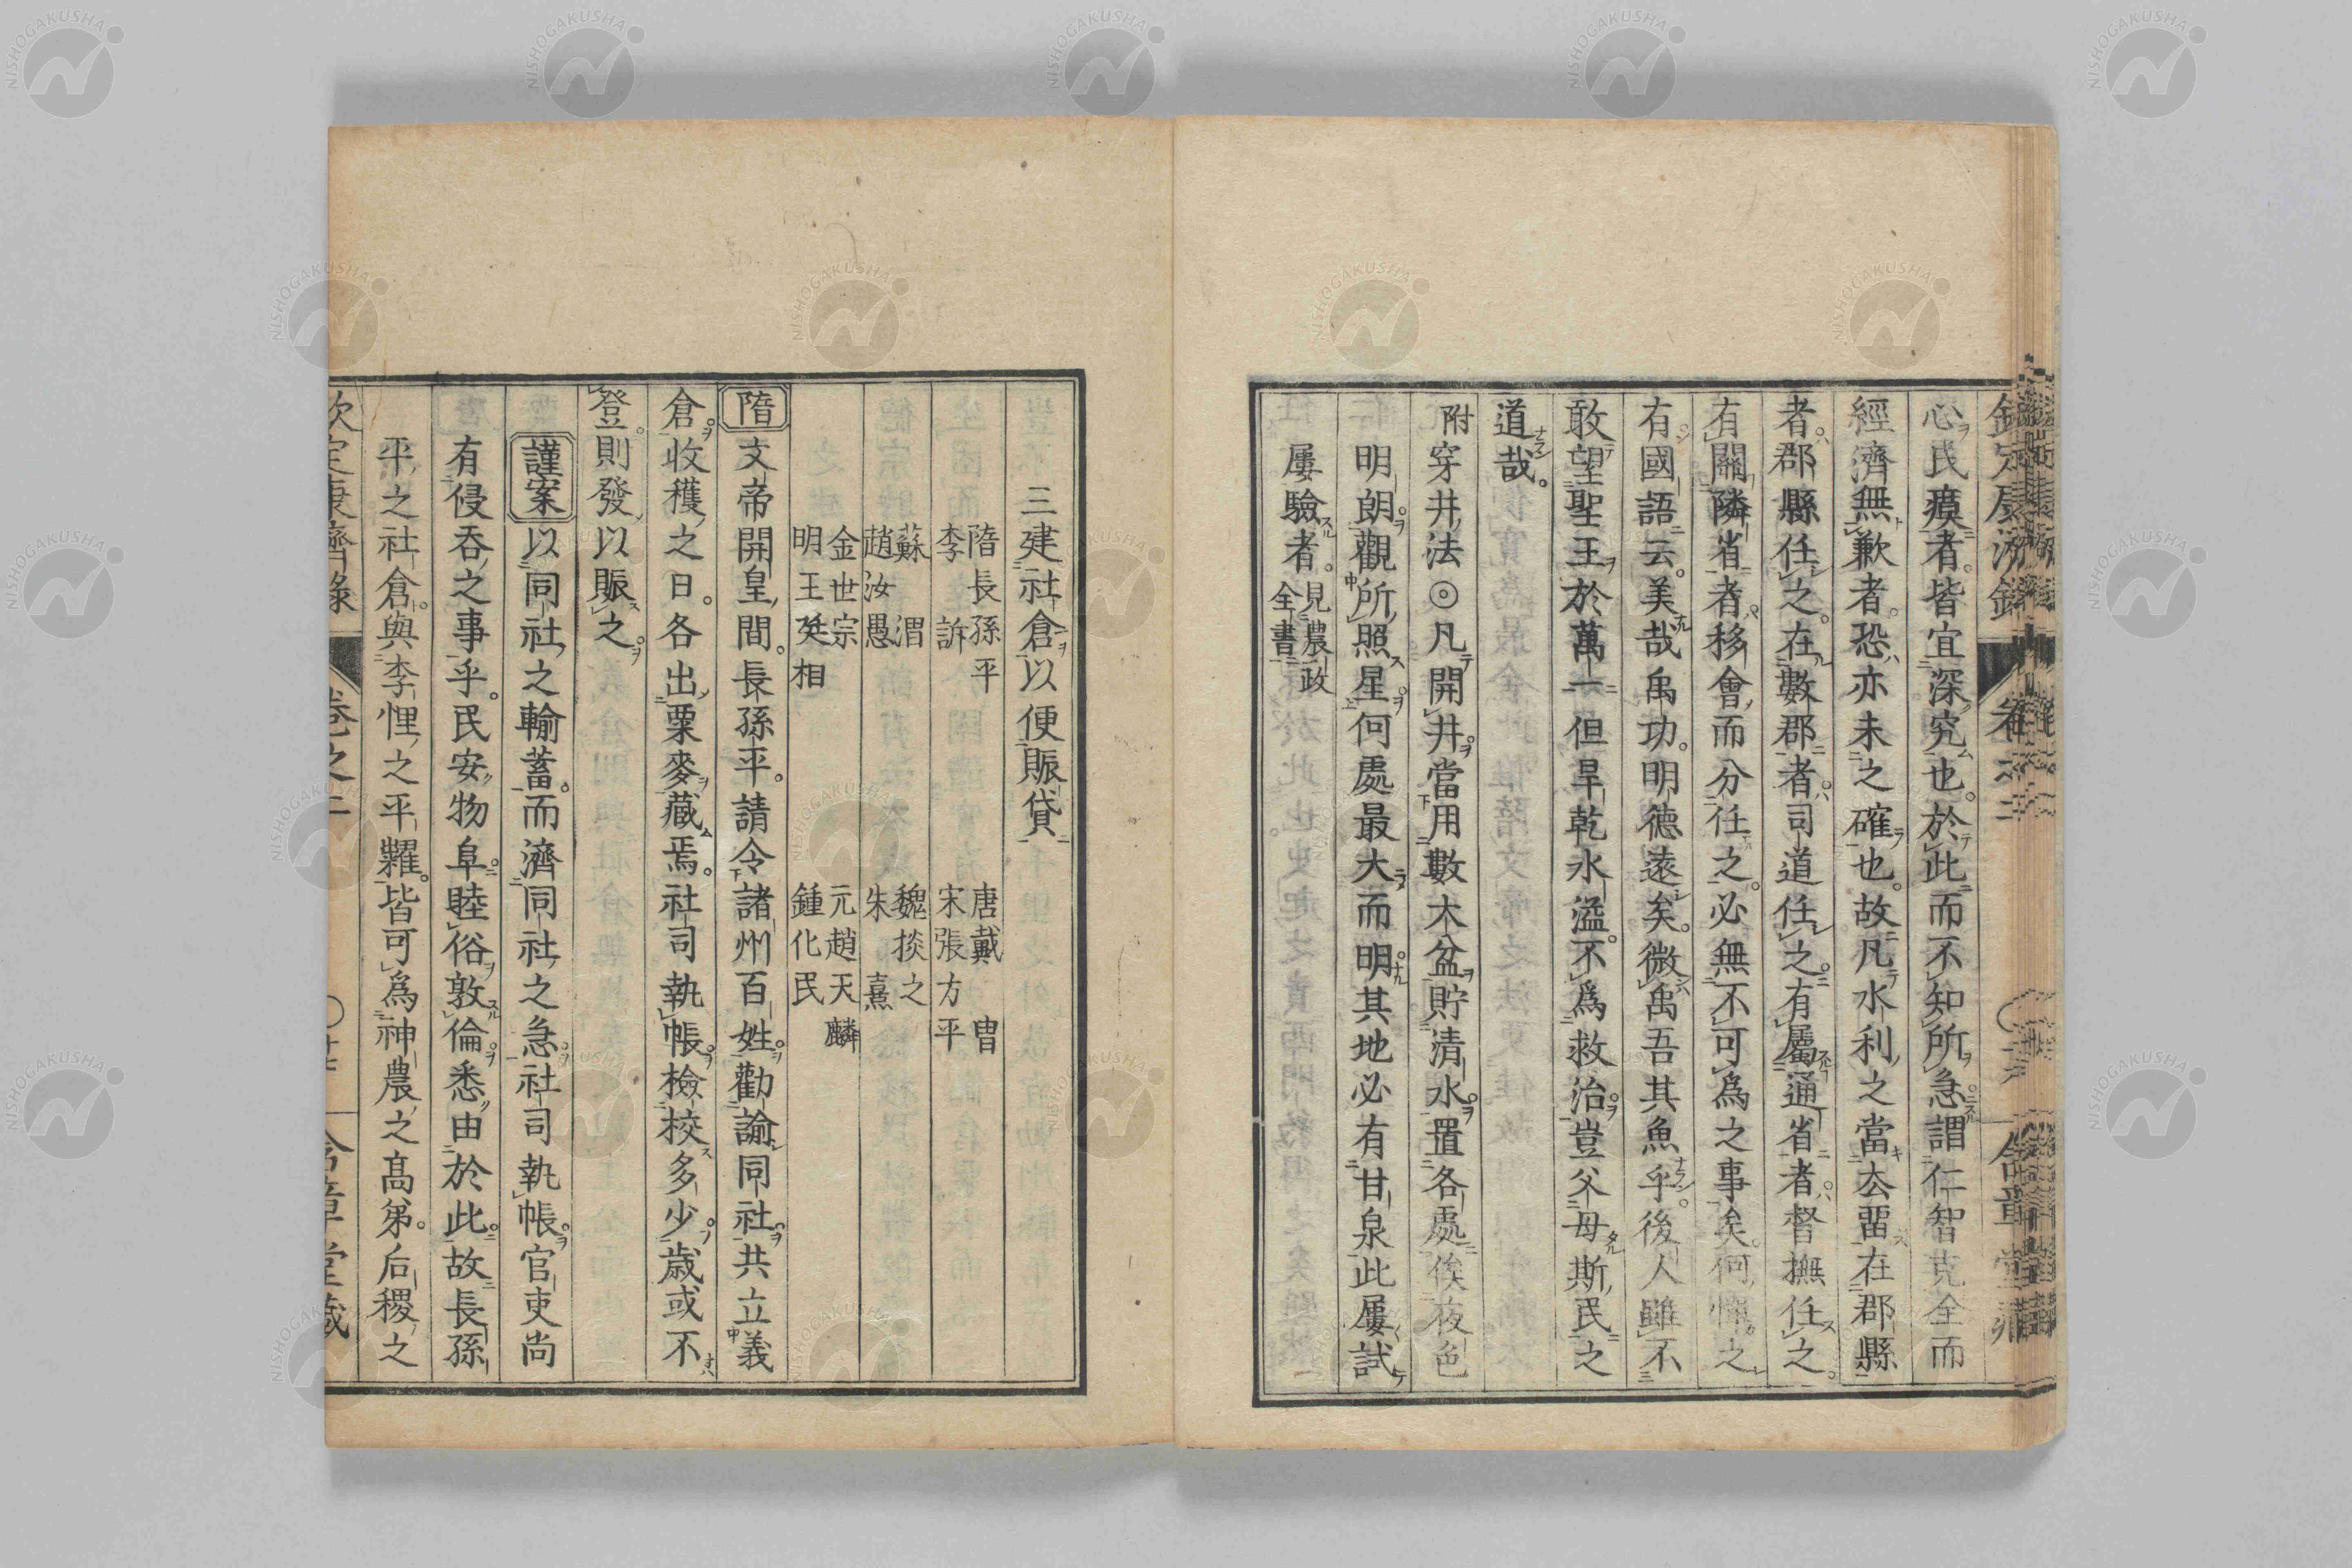 欽定康濟錄 卷之二 含章堂藏
心民瘼者皆宜深究也於此而不知所急謂仁智克全而
經濟無歉者恐亦未之確也故凡水利之當去畱在郡縣
者郡縣任之在數郡者司道任之有屬通省者督撫任之
有關隣省者移會而分任之必無不可為之事矣何憚之
有國語云美哉禹功明德遠矣微禹吾其魚乎後人雖不
敢望聖王於萬一但旱乾水溢不爲救治豈父母斯民之
道哉
附穿井法⊙凡開井當用數木盆貯清水置各處俟夜色
明朗觀所照星何處最大而明其地必有甘泉此屢試
屢驗者見農政全書
三建社倉以便賑貸
隋長孫平 唐戴 冑
李 訴 宋張方平
蘇 渭 魏掞之
趙汝愚 朱 熹
金世宗 元趙天麟
明王廷相 鍾化民
隋文帝開皇間長孫平請令諸州百姓勸諭同社共立義
倉收穫之日各出粟麥藏焉社司執帳檢校多少歲或不
登則發以賑之
謹案以同社之輸蓄而濟同社之急社司執帳官吏尚
有侵吞之事乎民安物阜睦俗敦倫悉由於此故長孫
平之社倉與李悝之平糶皆可爲神農之高弟后稷之
欽定康濟錄 卷之二 含章堂藏
NISHOGAKUSHA